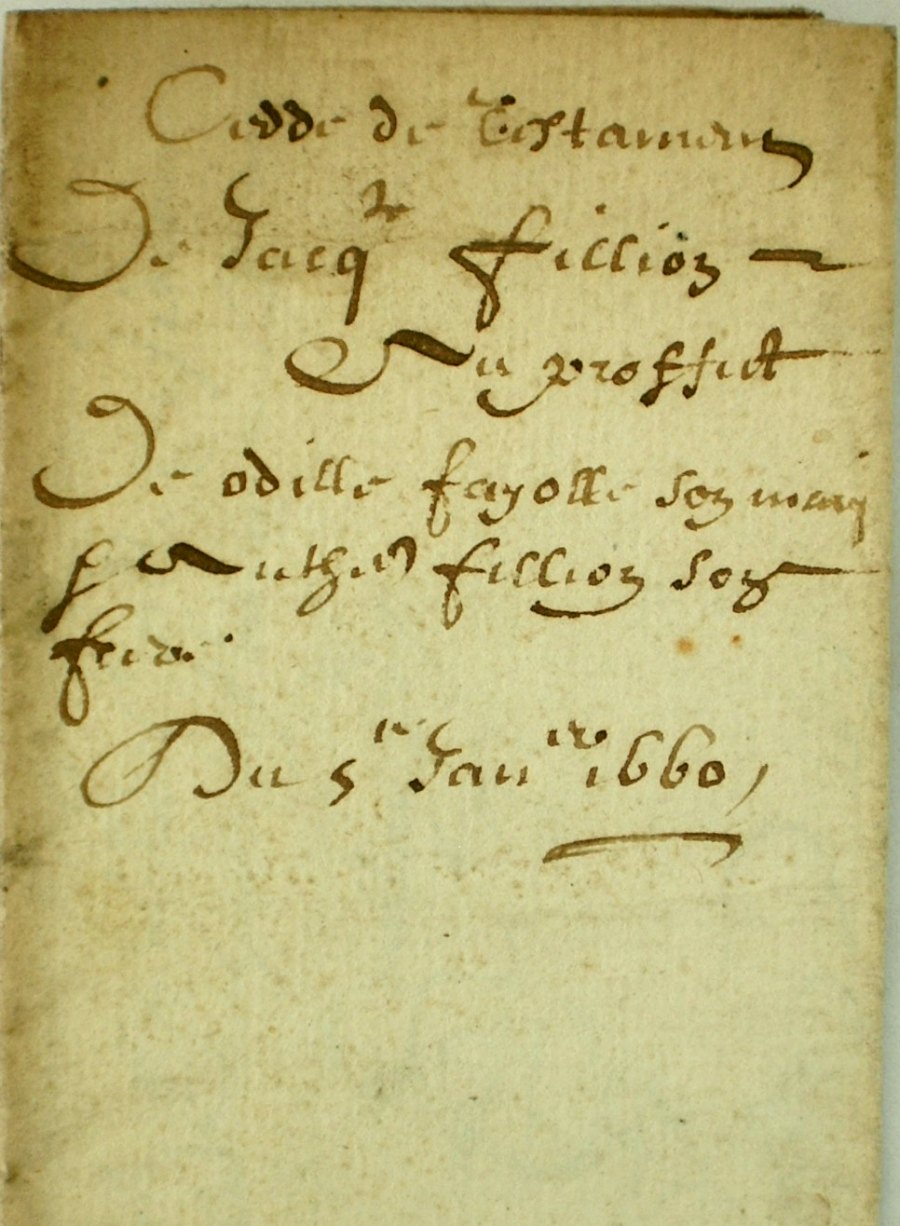 Cedde de Testament
De Jacq^te fillion
Au proffict
De odille fayolle son mary
& Anthe fillion son
frere
Du 5^e Jan^er 1660,